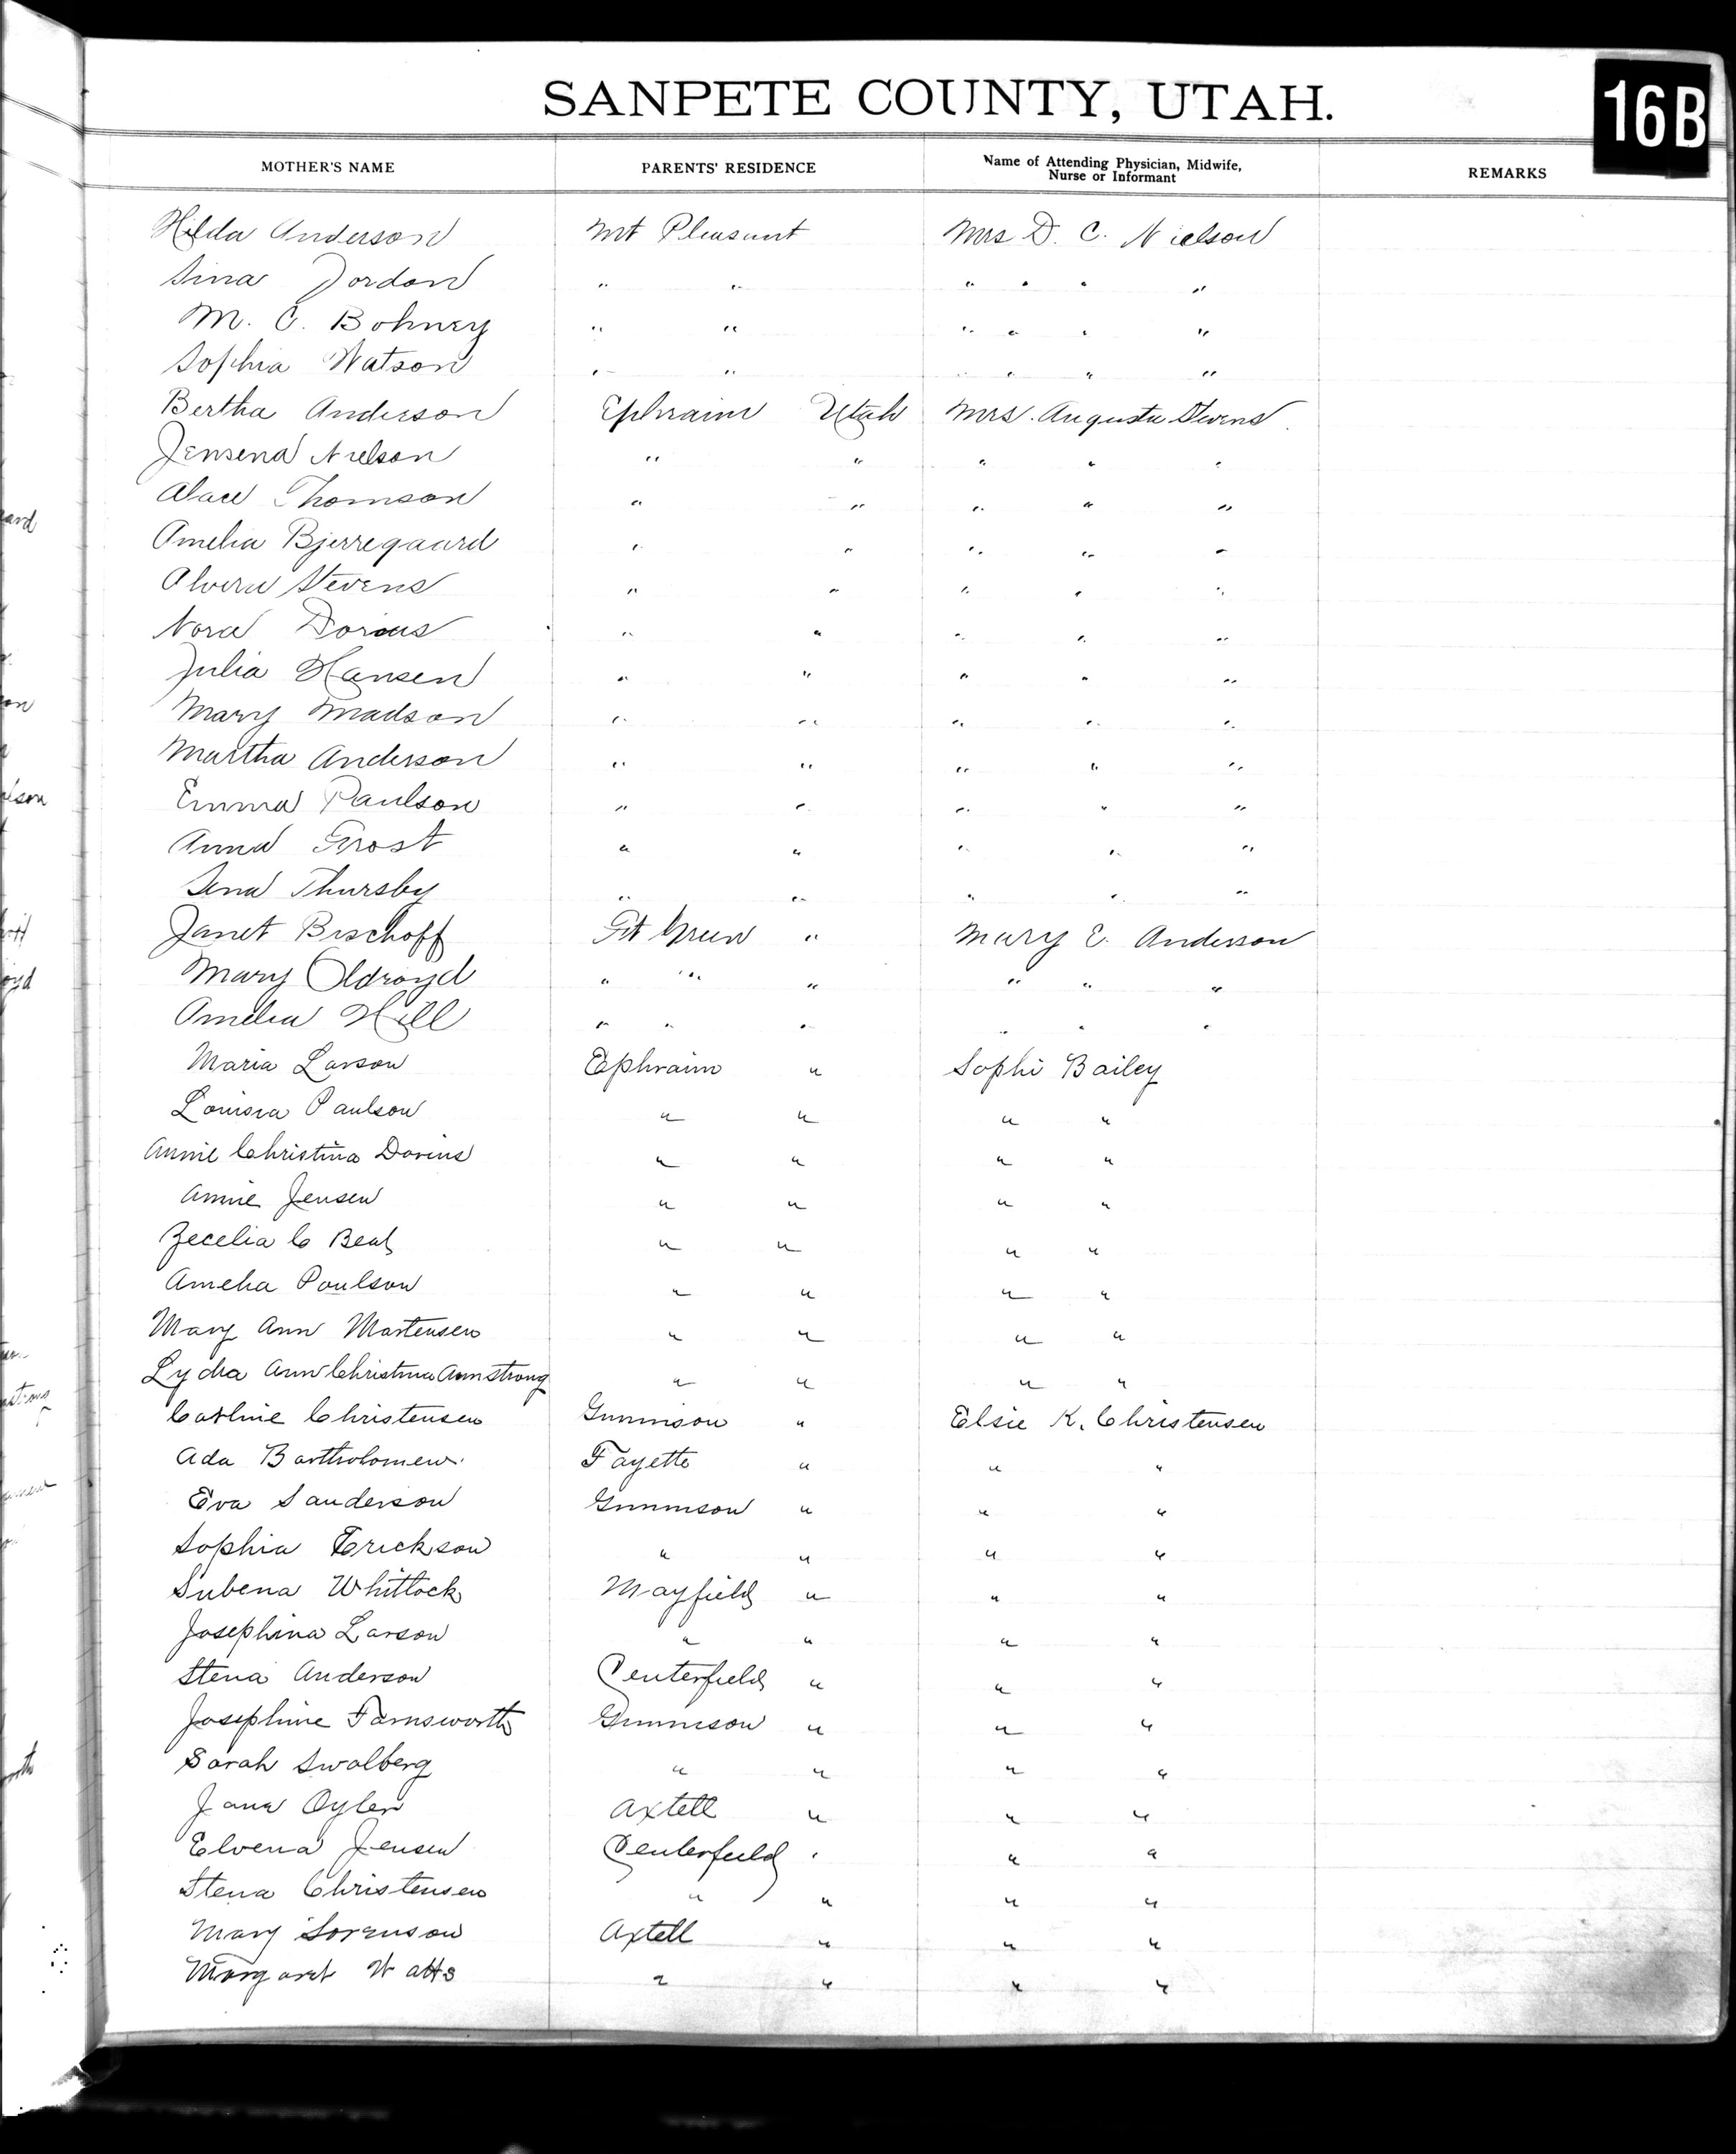 SANPETE COUNTY, UTAH.
16B
MOTHER'S NAME PARENTS' RESIDENCE Name of Attending Physician, Midwife, Nurse or Informant REMARKS
Hilda Anderson Mt Pleasant Mrs D. C. Nielson
Sina Jordon " " " " " "
M. C. Bohney " " " " " "
Sophia Watson " " " " " "
Bertha Anderson Ephraim Utah Mrs. Augusta Stevens
Jensena Nielson " " " " "
Thomson " " " " "
Amelia Bjerregaard " " " " "
Alvera Stevens " " " " "
Nora Dorius " " " " "
Julia Hansen " " " " "
Mary Madson " " " " "
Martha Anderson " " " " "
Emma Paulson " " " " "
Anna Frost " " " " "
Thursby " " " " "
Janet Bischoff Ft Green " Mary E. Anderson
Mary Oldroyd " " " " " "
Amelia Hill " " " " " "
Maria Larson Ephraim " Sophi Bailey
Louisia Paulson " " " "
Annie Christina Dorius " " " "
Annie Jensen " " " "
Zecelia C Beal " " " "
Amelia Poulson " " " "
Mary Ann Mortensen " " " "
Lydia Ann Christina Armstrong " " " "
Christensen Gunnison " Elsie K. Christensen
Ada Bartholomew Fayette " " "
Eva Sanderson Gunnison " " "
Sophia Erickson " " " "
Subena Whitlock Mayfield " " "
Josephina Larson " " " "
Stena Anderson Centerfield " " "
Josephine Farnsworth Gunnison " " "
Sarah Swalberg " " " "
Jane Oyler Axtell " " "
Elvena Jensen Centerfield " " "
Stena Christensen " " " "
Mary Sorenson Axtell " " "
Margaret Watts " " " "